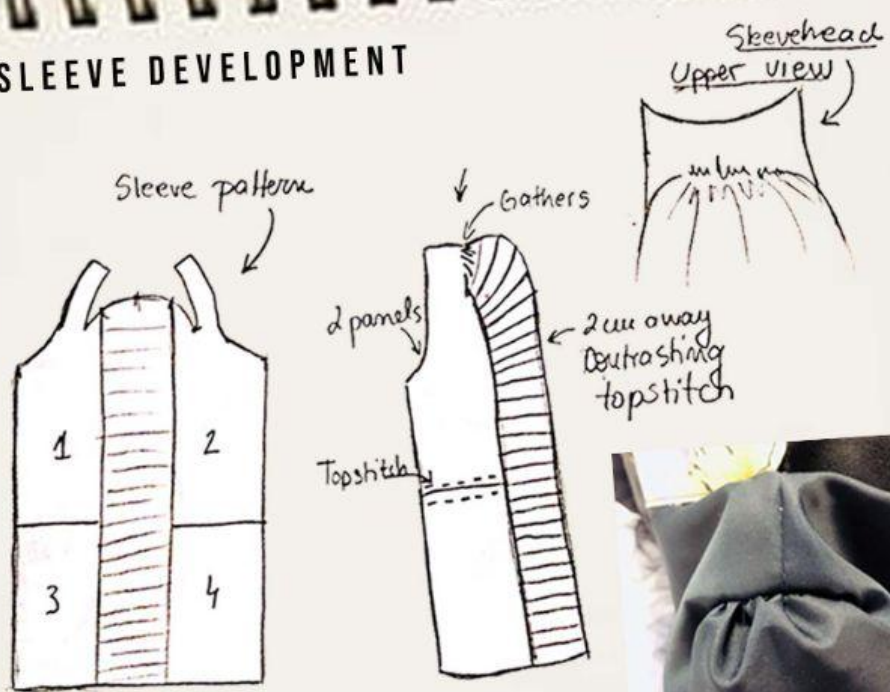 SLEEVE DEVELOPMENT
Sleevehead
Upper view
Sleeve pattern
Gathers
2 panels
2cm away
Contrasting
topstitch
Topstitch
1
2
3
4